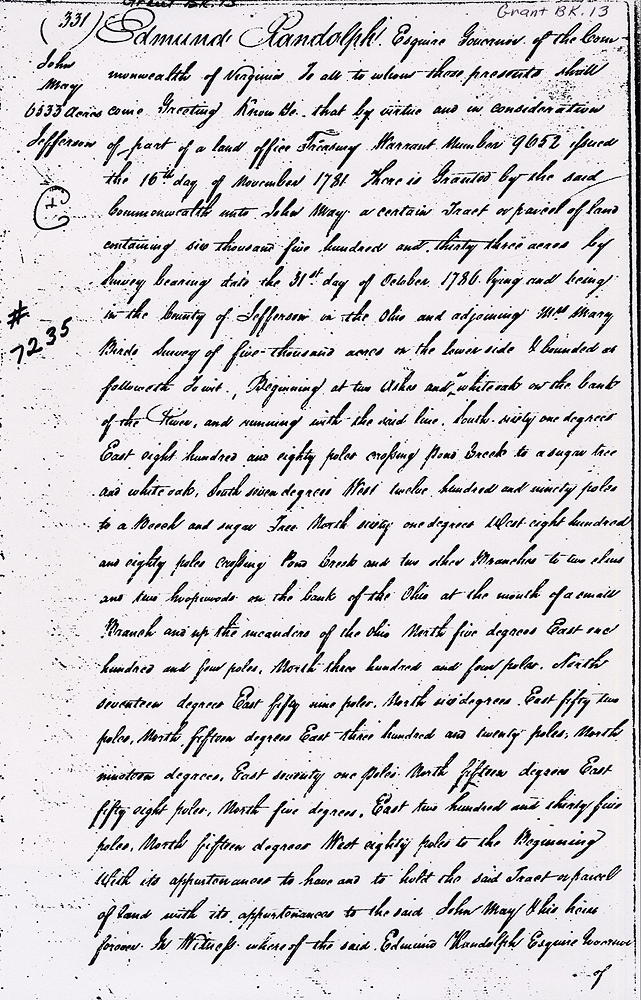 Grant BK. 13
Grant BK. 13
(331) Edmund Randolph Esquire Governor of the Com-
John May
6533 acres
Jefferson
monwealth of Virginia To all to whom these presents shall
come Greeting Know Ye that by virtue and in consideration
of part of a land office Treasury Warrant Number 9652 issued
the 16th day of November 1781 There is Granted by the said
Commonwealth unto John May a certain Tract or parcel of land
containing six thousand five hundred and thirty three acres by
Survey bearing date the 31st day of October 1786 lying and being
in the County of Jefferson on the Ohio and adjoining Mrs Mary
# 7235
Birds Survey of five thousand acres on the lower side & bounded as
followeth To wit, Beginning at two Ashes and a white oak on the bank
of the River, and running with the said line, South sixty one degrees
East eight hundred and eighty poles crossing Pond Creek to a sugar tree
and white oak, South seven degrees West twelve hundred and ninety poles
to a Beech and sugar Tree North sixty one degrees West eight hundred
and eighty poles crossing Pond Creek and two other Branches to two elms
and two hoopwoods on the bank of the Ohio at the mouth of a small
Branch and up the meanders of the Ohio North five degrees East one
hundred and four poles, North three hundred and four poles, North
seventeen degrees East fifty nine poles, North six degrees East fifty two
poles, North fifteen degrees East three hundred and twenty poles, North
nineteen degrees, East seventy one poles North fifteen degrees East
fifty eight poles, North five degrees, East two hundred and thirty five
poles, North fifteen degrees West eighty poles to the Beginning
With its appurtenances to have and to hold the said Tract or parcel
of Land with its appurtenances to the said John May & his heirs
forever In Witness whereof the said Edmund Randolph Esquire Governor
of